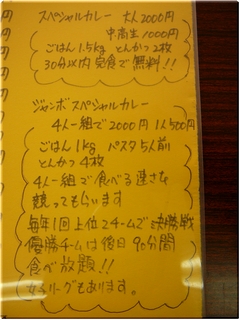 スペシャルカレー 大人2000円
中高生1000円
ごはん1.5kg とんかつ2枚
30分以内完食で無料!!
ジャンボスペシャルカレー
4人一組で2000円 1人500円
ごはん1kg パスタ5人前
とんかつ4枚
4人一組で食べる速さを
競ってもらいます
毎年1回上位2チームで決勝戦
優勝チームは後日90分間
食べ放題!!
女子リーグもあります。